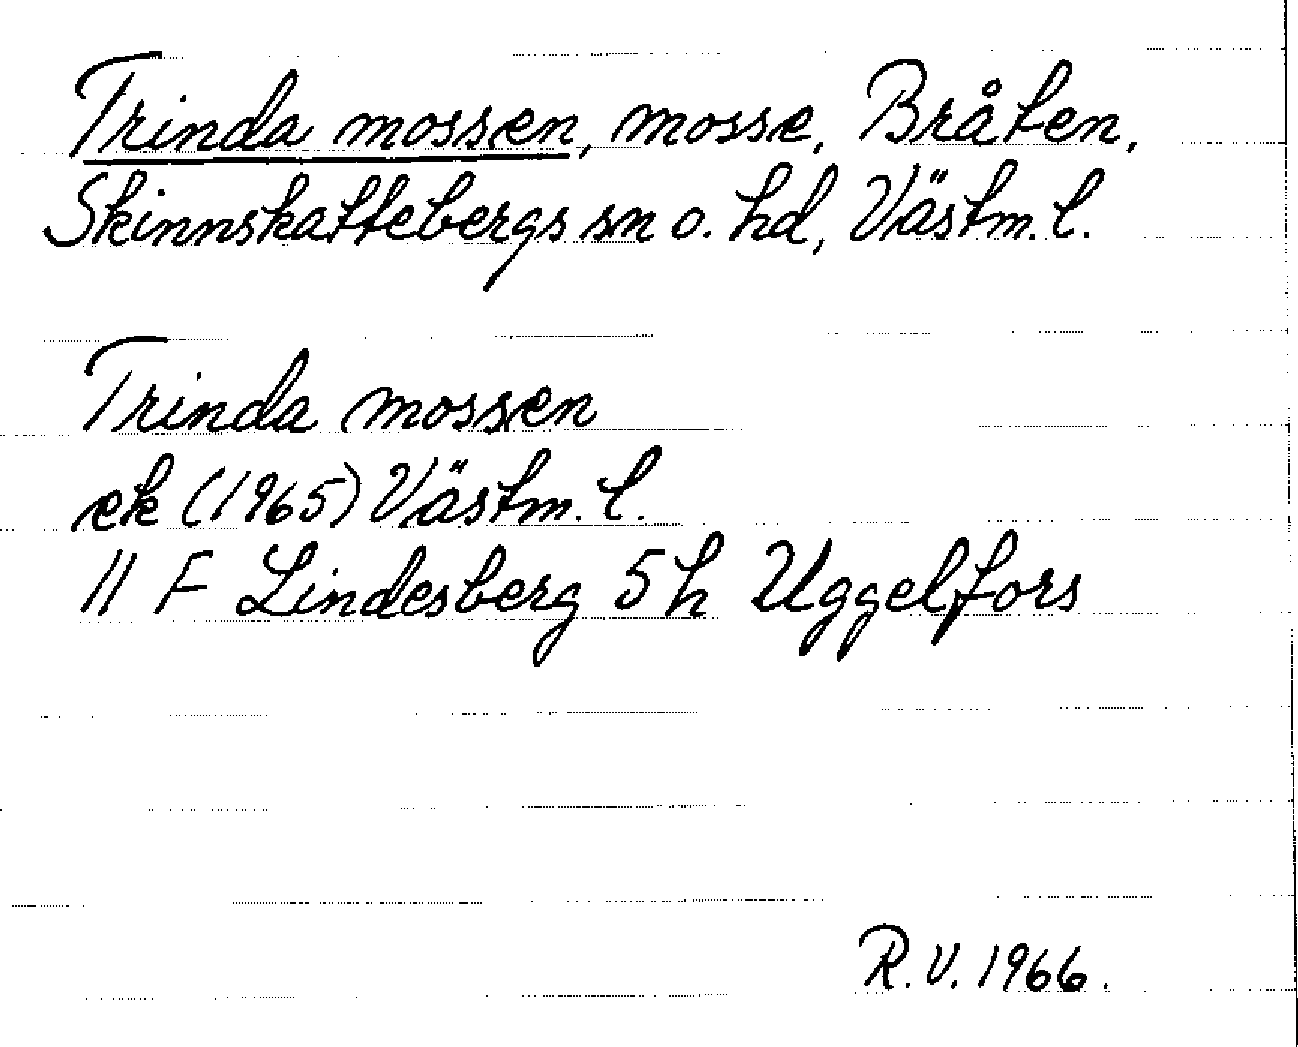 Trinda mossen, mosse, Bråten,
Skinnskattebergs sn o. hd, Västm. l.
Trinda mossen
ek (1965) Västm. l.
11 F Lindesberg 5 h Uggelfors
R.V. 1966.